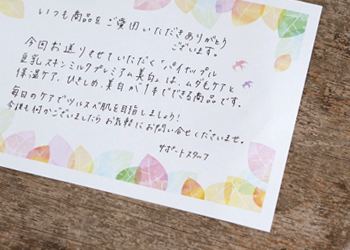 いつも商品をご愛用いただきありがとう
ございます。
今回お送りさせていただく「パイナップル
豆乳スキンミルクプレミアム美白」は、ムダ毛ケアと
保湿ケア、ひきしめ、美白が1本でできる商品です。
毎日のケアでツルスベ肌を目指しましょう!
今後も何かございましたらお気軽にお問い合せくださいませ。
サポートスタッフ